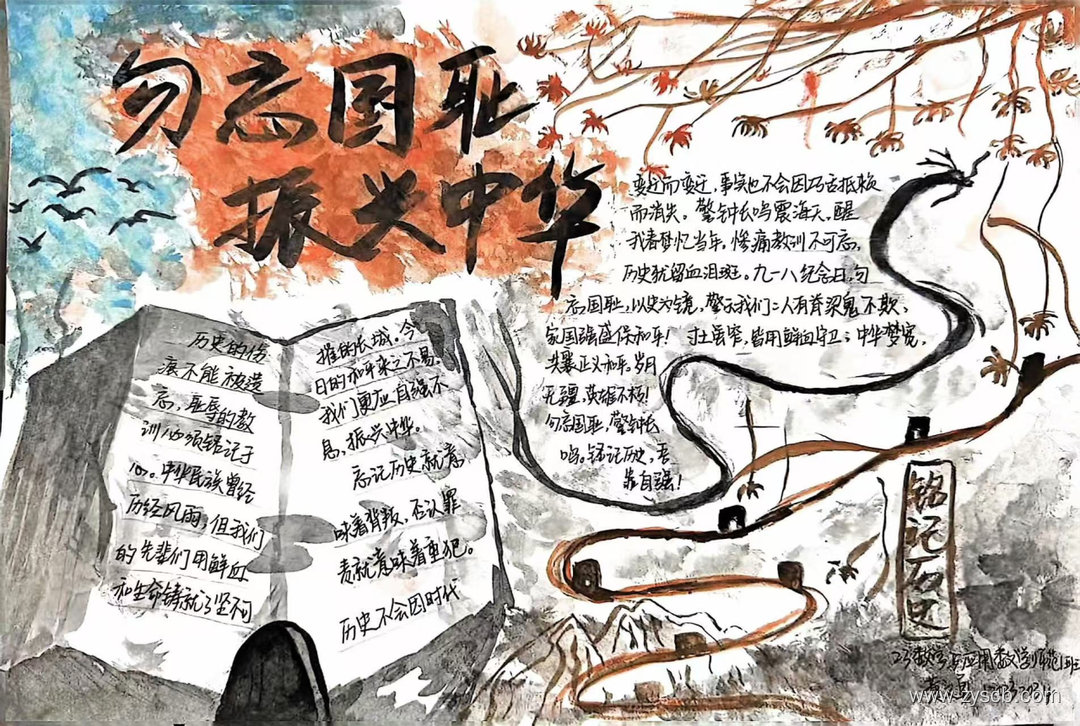 勿忘国耻
振兴中华
历史的伤
痕不能被遗
忘,屈辱的教
训必须铭记于
心。中华民族曾经
历经风雨,但我们
的先辈们用鲜血
和生命铸就了坚不可
摧的长城。今
日的和平来之不易,
我们更应自强不
息,振兴中华。
忘记历史就意
味着背叛,否认罪
责就意味着重犯。
历史不会因时代
变迁而变迁,事实也不会因巧舌抵赖
而消失。警钟长鸣震海天,醒
我春梦忆当年,惨痛教训不可忘,
历史犹留血泪斑。九一八纪念日,勿
忘国耻,以史为镜,警示我们:人有脊梁鬼不欺,
家国强盛保和平!寸土虽窄,皆用鲜血守卫;中华梦宽,
共襄正义和平。岁月
无疆,英雄不朽!
勿忘国耻,警钟长
鸣。铭记历史,吾
辈自强!
铭记历史
23数学与应用数学师范1班
www.zyscb.com